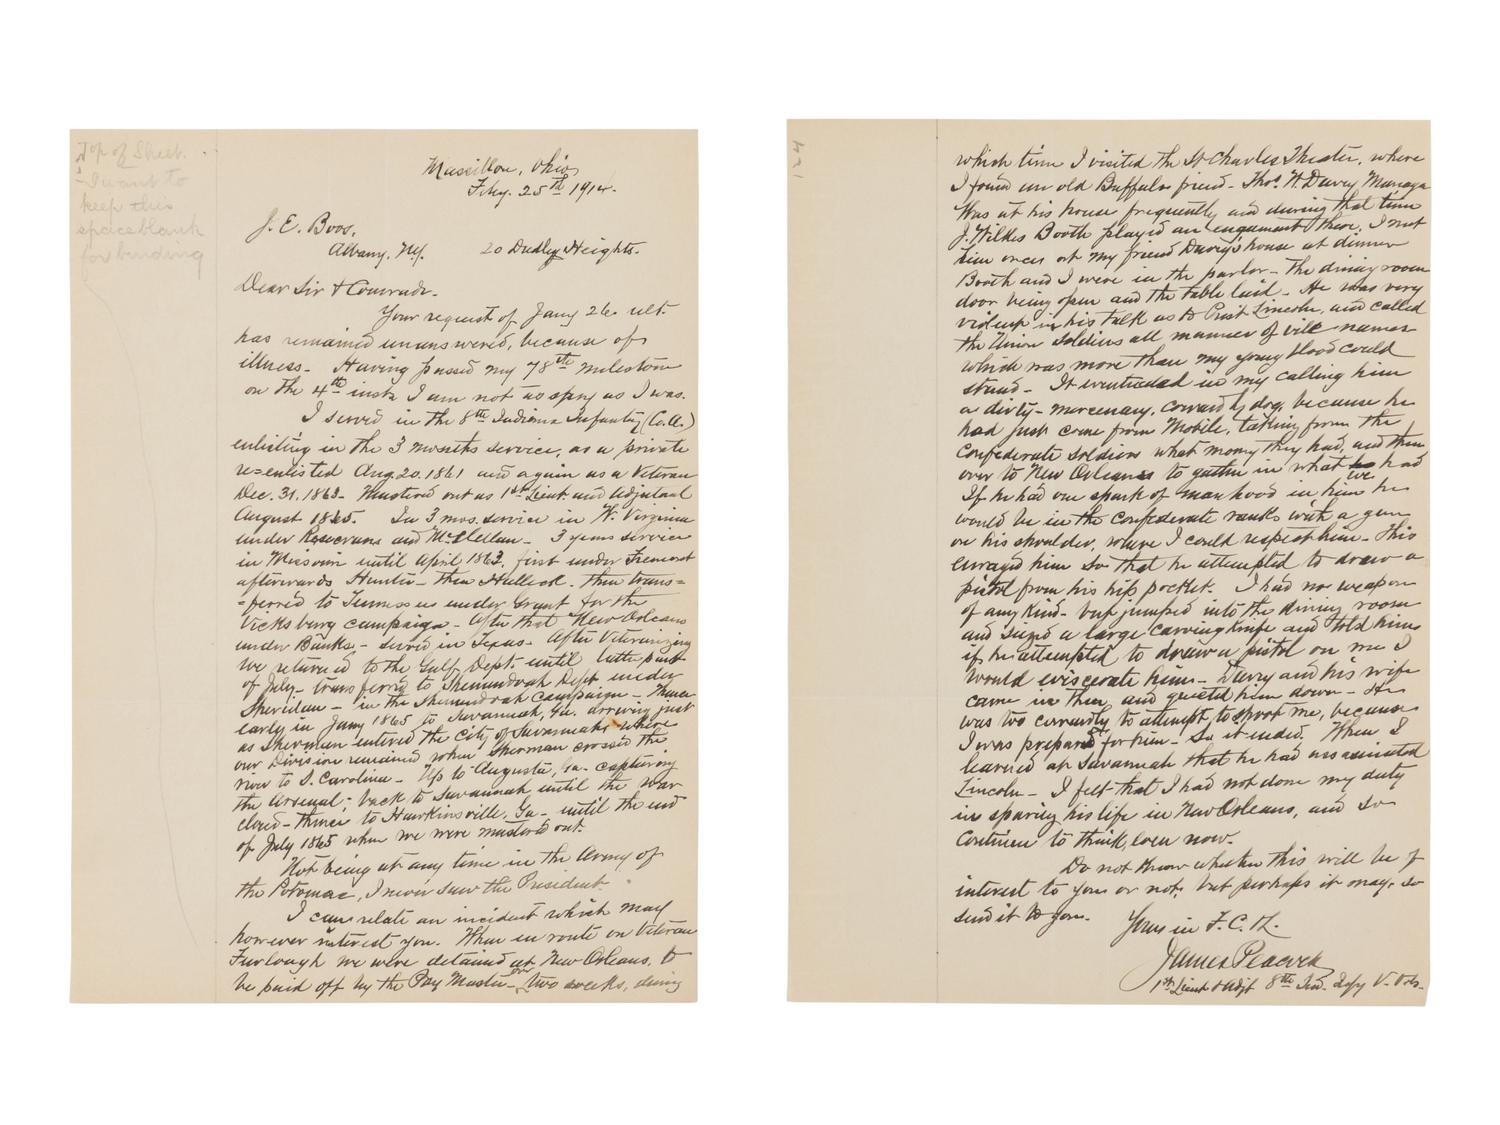 Top of Sheet.
I want to
keep this
space blank
for binding
Massillon, Ohio,
Feby. 25th 1914.
J. E. Boos,
Albany, NY. 20 Dudley Heights.
Dear Sir & Comrade.
Your request of Jany 26. ult.
has remained unanswered, because of
illness. Having passed my 78th milestone
on the 4th inst. I am not as spry as I was.
I served in the 8th Indiana Infantry (Co. A.)
enlisting in the 3 months service, as a private
re=enlisted Aug 20. 1861 and again as a Veteran
Dec. 31. 1863 - Mustered out as 1st Lieut and Adjutant
August 1865. In 3 mos. service in W. Virginia
under Rosecrans and McClellan - 3 years service
in Missouri until April 1863, first under Fremont
afterwards Hunter - then Halleck. then trans=
=ferred to Tennessee under Grant for the
Vicksburg campaign - After that New Orleans
under Banks - served in Texas - After Veteranizing
we returned to the Gulf Dept. until latter part
of July - transferred to Shenandoah Dept under
Sheridan - in the Shenandoah Campaign - Thence
early in Jany 1865 to Savannah, Ga. arriving just
as Sherman entered the City of Savannah - where
our Division remained when Sherman crossed the
river to S. Carolina - Up to Augusta, Ga - capturing
the Arsenal; back to Savannah until the war
closed - thence to Hawkinsville, Ga - until the end
of July 1865 when we were mustered out.
Not being at any time in the Army of
the Potomac, I never saw the President.
I can relate an incident which may
however interest you. When en route on Veteran
Furlough we were detained at New Orleans, to
be paid off by the Pay Master over two weeks, during
which time I visited the St Charles Theater, where
I found an old Buffalo friend - Thos. W. Davey Manager
Was at his house frequently and during that time
J. Wilkes Booth played an engagement there. I met
him once at my friend Davey's house at dinner
Booth and I were in the parlor - the dining room
door being open and the table laid - He was very
violent in his talk as to Prest Lincoln, and called
the Union soldiers all manner of vile names
which was more than my young blood could
stand - It eventuated in my calling him
a dirty - mercenary, cowardly dog, because he
had just come from Mobile, taking from the
Confederate soldiers what money they had, and then
over to New Orleans to gather in what we had
If he had one spark of manhood in him he
would be in the Confederate ranks with a gun
on his shoulder, where I could respect him - This
enraged him so that he attempted to draw a
pistol from his hip pocket. I had no weapon
of any kind - but jumped into the dining room
and seized a large carving knife and told him
if he attempted to draw a pistol on me I
would eviscerate him - Davey and his wife
came in then, and quieted him down - He
was too cowardly to attempt to shoot me, because
I was prepared for him - So it ended. When I
learned at Savannah that he had assassinated
Lincoln - I felt that I had not done my duty
in sparing his life in New Orleans, and so
continue to think, even now.
Do not know whether this will be of
interest to you or not, but perhaps it may, so
send it to you.
Yours in F. C. & L.
James Peacock
1st Lieut & Adjt 8th Ind. Infy V. Vols.